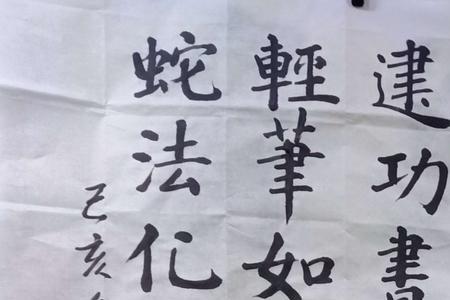 建功書
輕筆如
蛇法化
己亥